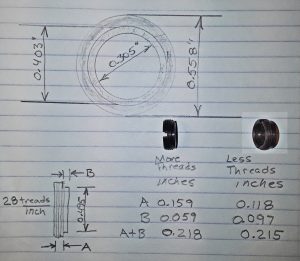 0.403"
0.305"
0.558"
More Less
Threads Threads
inches inches
B
28 treads/inch
A 0.159 0.118
B 0.059 0.097
A+B 0.218 0.215
A